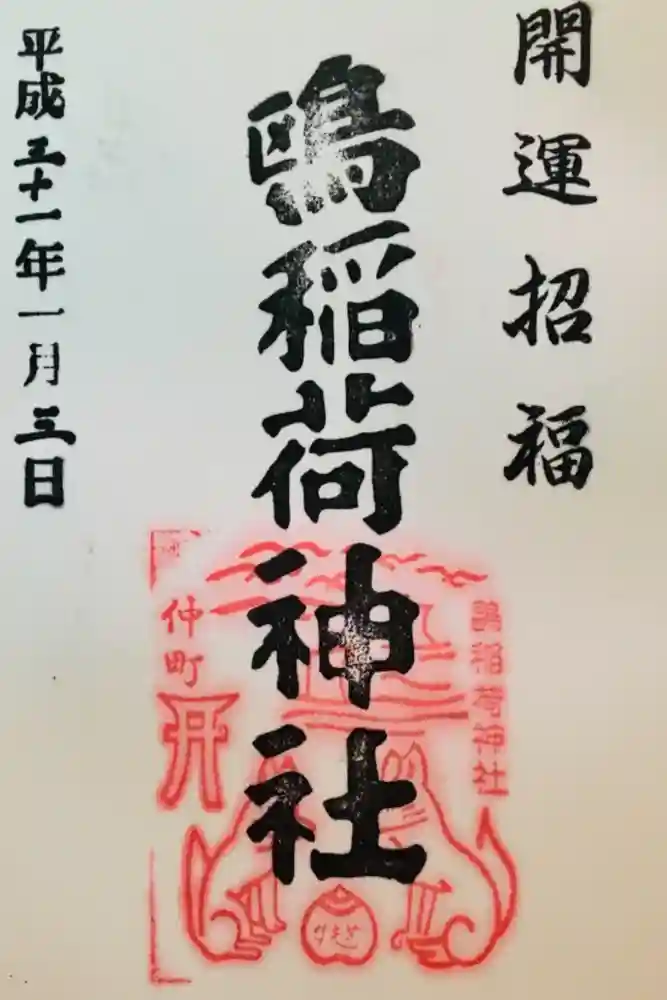 開運招福
鴎稲荷神社
平成三十一年一月三日
稲荷神社
仲町